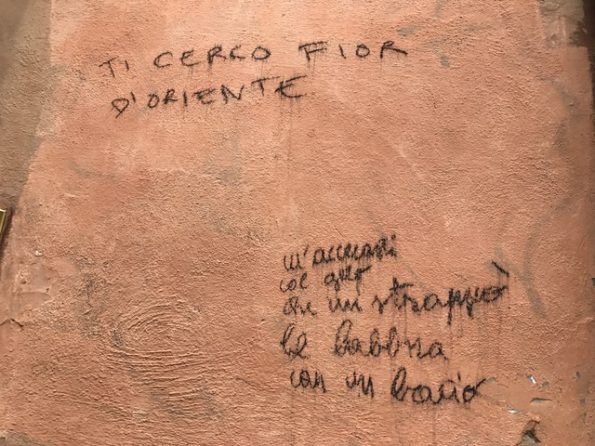 TI CERCO FIOR
D'ORIENTE
m'accorsi
che un strappò
le labbra
con un bacio